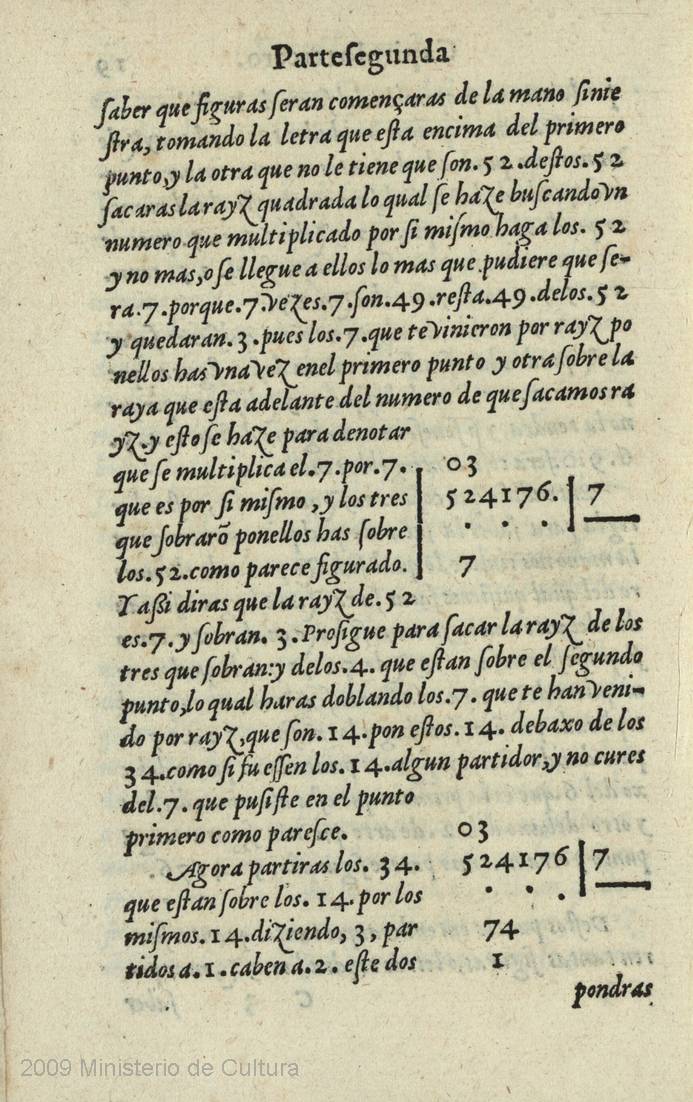 Parteſegunda
ſaber que figuras ſeran començaras de la mano ſinie
ſtra, tomando la letra que eſta encima del primero
punto,y la otra que no le tiene que ſon. 52 .deſtos. 52
ſacaras la rayz quadrada lo qual ſe haze buſcando vn
numero que multiplicado por ſi miſmo haga los. 52
y no mas,o ſe llegue a ellos lo mas que pudiere que ſe-
ra.7.porque.7.vezes.7.ſon.49.reſta.49.delos.52
y quedaran.3.pues los.7.que te vinieron por rayz po
nellos has vna vez enel primero punto y otra ſobre la
raya que eſta adelante del numero de que ſacamos ra
yz.y eſto ſe haze para denotar
que ſe multiplica el.7.por.7.
que es por ſi miſmo ,y los tres
que ſobrarõ ponellos has ſobre
los.52.como parece figurado.
03
524176. 7
. . .
7
Y aßi diras que la rayz de.52
es.7.y ſobran. 3.Proſigue para ſacar la rayz de los
tres que ſobran:y delos.4. que eſtan ſobre el ſegundo
punto,lo qual haras doblando los.7. que te han veni-
do por rayz,que ſon.14.pon eſtos.14. debaxo de los
34.como ſi fueſſen los.14.algun partidor,y no cures
del.7. que puſiſte en el punto
primero como pareſce.
Agora partiras los. 34.
que eſtan ſobre los. 14.por los
miſmos.14.diziendo, 3, par
tidos a.1.caben a.2. eſte dos
03
524176 7
. . .
74
1
pondras
2009 Ministerio de Cultura